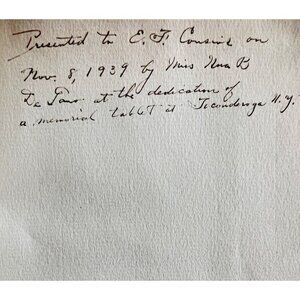 Presented to E. F. Cousins on
Nov. 8, 1939 by Miss B
at the dedication of
a memorial tablet at Ticonderoga N.Y.